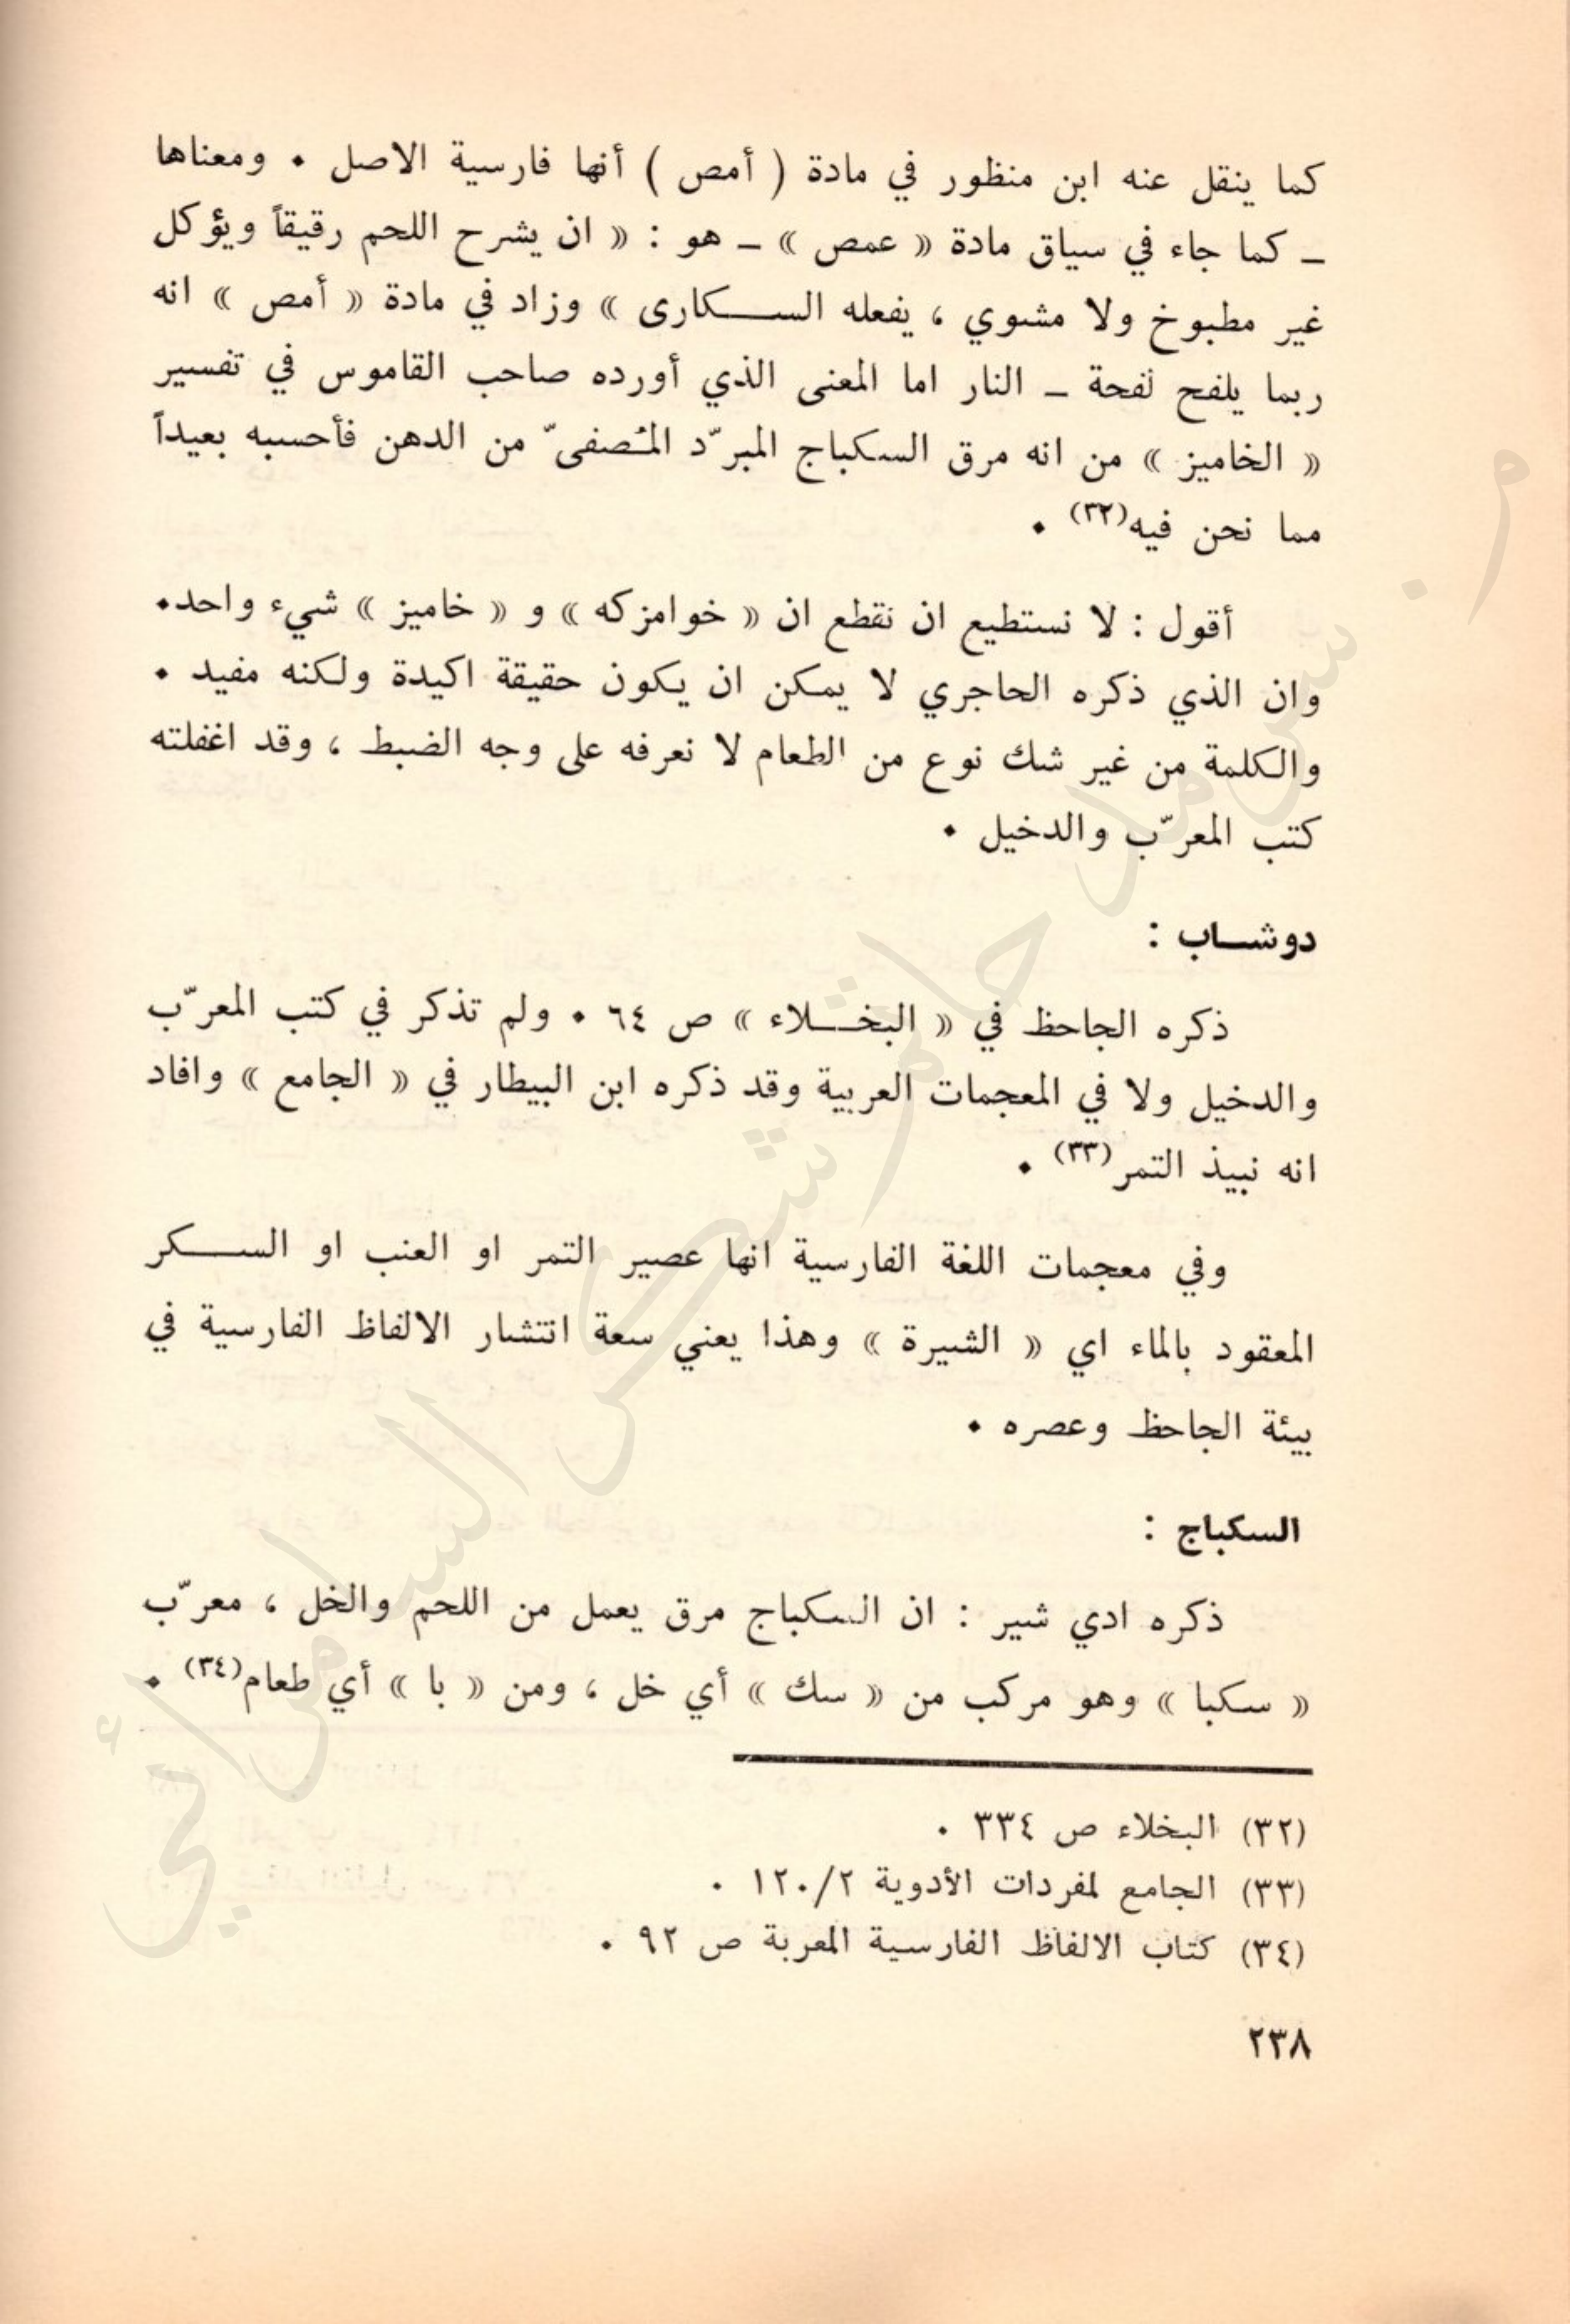 كما ينقل عنه ابن منظور في مادة ( أمص ) أنها فارسية الاصل . ومعناها
ـ كما جاء في سياق مادة « عمص » ـ هو : « ان يشرح اللحم رقيقاً ويؤكل
غير مطبوخ ولا مشوي ، يفعله الســكارى » وزاد في مادة « أمص » انه
ربما يلفح لفحة ـ النار اما المعنى الذي أورده صاحب القاموس في تفسير
« الخاميز » من انه مرق السكباج المبرّد المُصفىّ من الدهن فأحسبه بعيداً
مما نحن فيه(٣٢) .
أقول : لا نستطيع ان نقطع ان « خوامزكه » و « خاميز » شيء واحد.
وان الذي ذكره الحاجري لا يمكن ان يكون حقيقة اكيدة ولكنه مفيد .
والكلمة من غير شك نوع من الطعام لا نعرفه على وجه الضبط ، وقد اغفلته
كتب المعرّب والدخيل .
دوشــاب :
ذكره الجاحظ في « البخــلاء » ص ٦٤ . ولم تذكر في كتب المعرّب
والدخيل ولا في المعجمات العربية وقد ذكره ابن البيطار في « الجامع » وافاد
انه نبيذ التمر(٣٣) .
وفي معجمات اللغة الفارسية انها عصير التمر او العنب او الســكر
المعقود بالماء اي « الشيرة » وهذا يعني سعة انتشار الالفاظ الفارسية في
بيئة الجاحظ وعصره .
السكباج :
ذكره ادي شير : ان السكباج مرق يعمل من اللحم والخل ، معرّب
« سكبا » وهو مركب من « سك » أي خل ، ومن « با » أي طعام(٣٤) .
(٣٢) البخلاء ص ٣٣٤ .
(٣٣) الجامع لمفردات الأدوية ١٢٠/٢ .
(٣٤) كتاب الالفاظ الفارسية المعربة ص ٩٢ .
٢٣٨